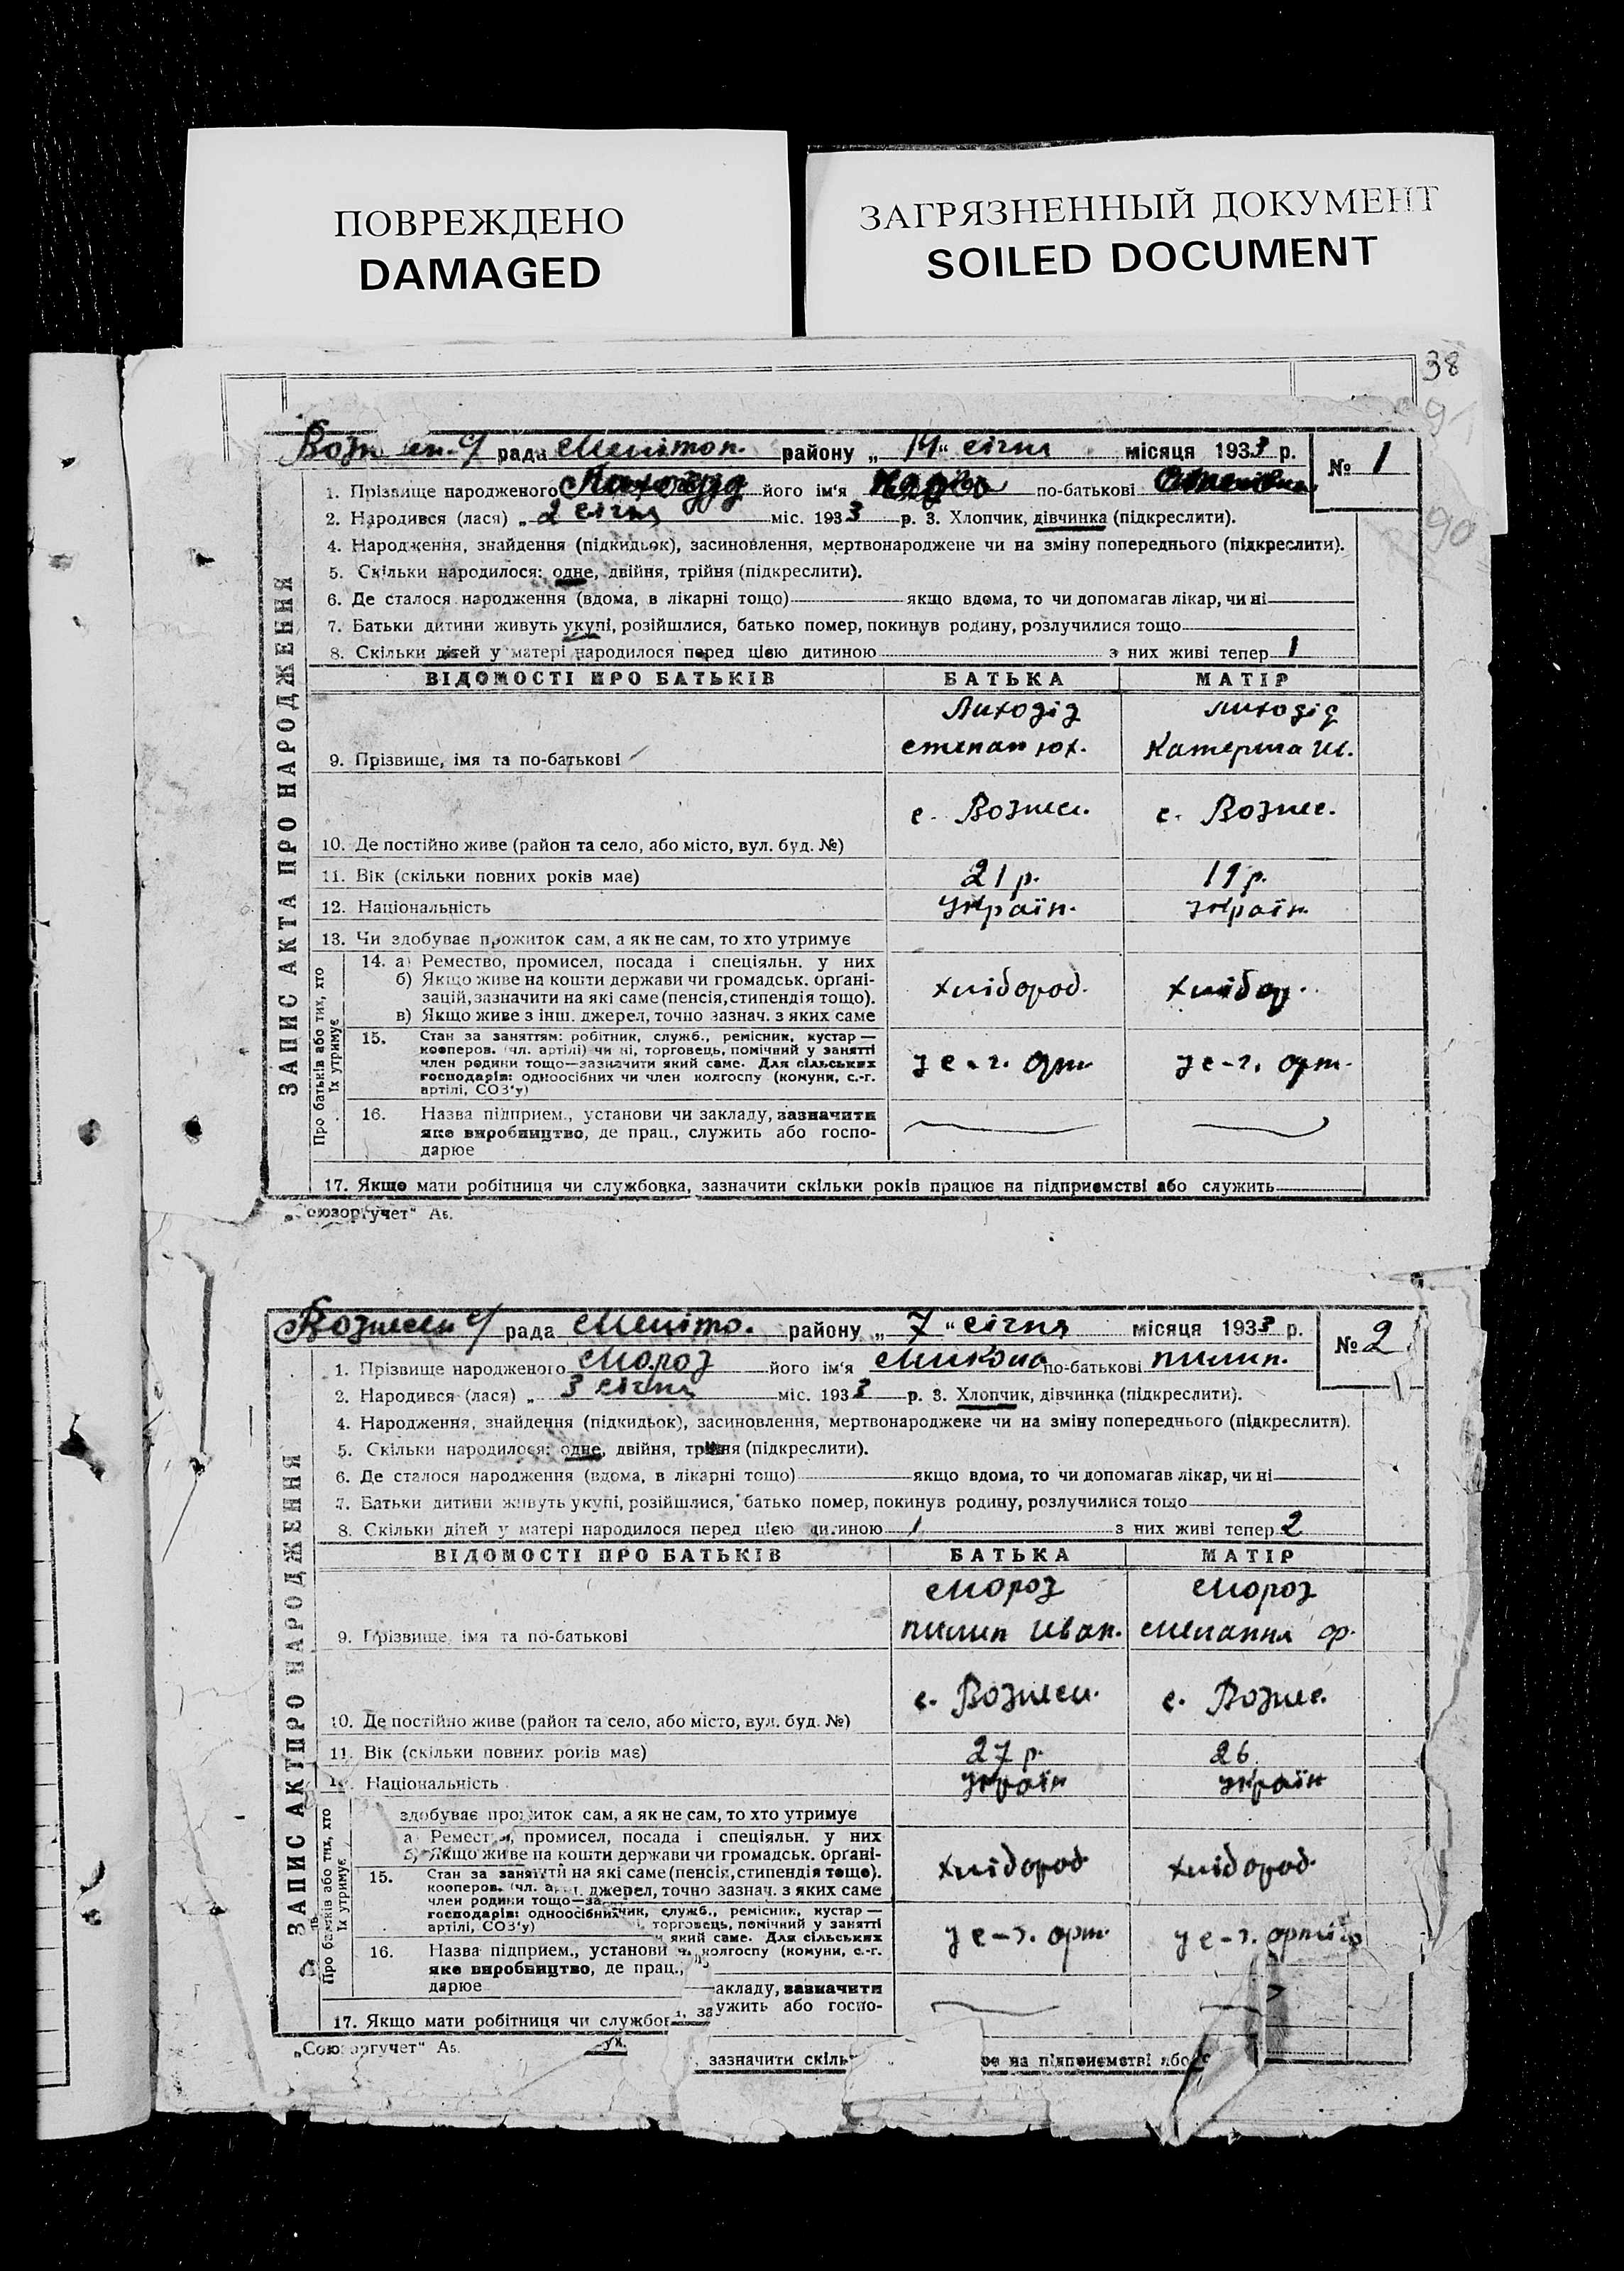 ПОВРЕЖДЕНО
DAMAGED
ЗАГРЯЗНЕННЫЙ ДОКУМЕНТ
SOILED DOCUMENT
38
90
рада Мелітоп. району „ 14 “ січня місяця 1933 р. № 1
ЗАПИС АКТА ПРО НАРОДЖЕННЯ
1. Прізвище народженого Лиходід його ім'я по-батькові
2. Народився (лася) „ 2 січня міс. 1933 р. 3. Хлопчик, дівчинка (підкреслити).
4. Народження, знайдення (підкидьок), засиновлення, мертвонароджене чи на зміну попереднього (підкреслити).
5. Скільки народилося: одне, двійня, трійня (підкреслити).
6. Де сталося народження (вдома, в лікарні тощо) якщо вдома, то чи допомагав лікар, чи ні
7. Батьки дитини живуть укупі, розійшлися, батько помер, покинув родину, розлучилися тощо
8. Скільки дітей у матері народилося перед цією дитиною з них живі тепер 1
ВІДОМОСТІ ПРО БАТЬКІВ БАТЬКА МАТІР
Лиходід Лиходід
9. Прізвище, імя та по-батькові Степан Юх. Катерина
с. Вознесен. с. Вознес.
10. Де постійно живе (район та село, або місто, вул. буд. №)
11. Вік (скільки повних років має) 21 р. 19 р.
12. Національність Україн. Україн.
13. Чи здобуває прожиток сам, а як не сам, то хто утримує
Про батьків або тих, хто їх утримує
14. а) Ремество, промисел, посада і спеціяльн. у них
б) Якщо живе на кошти держави чи громадськ. орґані-
зацій, зазначити на які саме (пенсія, стипендія тощо). хлібороб. хлібор.
в) Якщо живе з інш. джерел, точно зазнач. з яких саме
15. Стан за заняттям: робітник, служб., ремісник, кустар —
кооперов. (чл. артілі) чи ні, торговець, помічний у занятті
член родини тощо—зазначити який саме. Для сільських у с-г. арт. у с-г. арт.
господарів: одноосібних чи член колгоспу (комуни, с.-г.
артілі, СОЗ'у)
16. Назва підприєм., установи чи закладу, зазначити
яке виробництво, де прац., служить або госпо-
дарює
17. Якщо мати робітниця чи службовка, зазначити скільки років працює на підприємстві або служить
„Союзоргучет“ А5.
Вознесен с/ рада Меліто. району „ 7 “ січня місяця 1933 р. № 2
ЗАПИС АКТ ПРО НАРОДЖЕННЯ
1. Прізвище народженого Мороз його ім'я Микола по-батькові Пилип.
2. Народився (лася) „ 3 січня міс. 1933 р. 3. Хлопчик, дівчинка (підкреслити).
4. Народження, знайдення (підкидьок), засиновлення, мертвонароджене чи на зміну попереднього (підкреслити).
5. Скільки народилося: одне, двійня, трійня (підкреслити).
6. Де сталося народження (вдома, в лікарні тощо) якщо вдома, то чи допомагав лікар, чи ні
7. Батьки дитини живуть укупі, розійшлися, батько помер, покинув родину, розлучилися тощо
8. Скільки дітей у матері народилося перед цією дитиною 1 з них живі тепер 2
ВІДОМОСТІ ПРО БАТЬКІВ БАТЬКА МАТІР
Мороз Мороз
9. Прізвище, імя та по-батькові Пилип Иван. Мелания Ф.
с. Вознесен. с. Вознес.
10. Де постійно живе (район та село, або місто, вул. буд. №)
11. Вік (скільки повних років має) 27 р. 26
Національність Україн Україн
здобуває прожиток сам, а як не сам, то хто утримує
Про батьків або тих, хто їх утримує
а Ремество, промисел, посада і спеціяльн. у них
б) Якщо живе на кошти держави чи громадськ. орґані- хлібороб хлібороб
15. Стан за заняття на які саме (пенсія, стипендія тощо).
кооперов. (чл. а джерел, точно зазнач. з яких саме
член родини тощо—за
господарів: одноосібних чик, служб., ремісник, кустар —
артілі, СОЗ'у) торговець, помічний у занятті у с-г. арт. у с-г. артіль
який саме. Для сільських
16. Назва підприєм., установи ч колгоспу (комуни, с.-г.
яке виробництво, де прац.,
дарює акладу, зазначити
ужить або госпо-
17. Якщо мати робітниця чи службов
„Союзоргучет“ А5.
зазначити скіль на підприємстві або